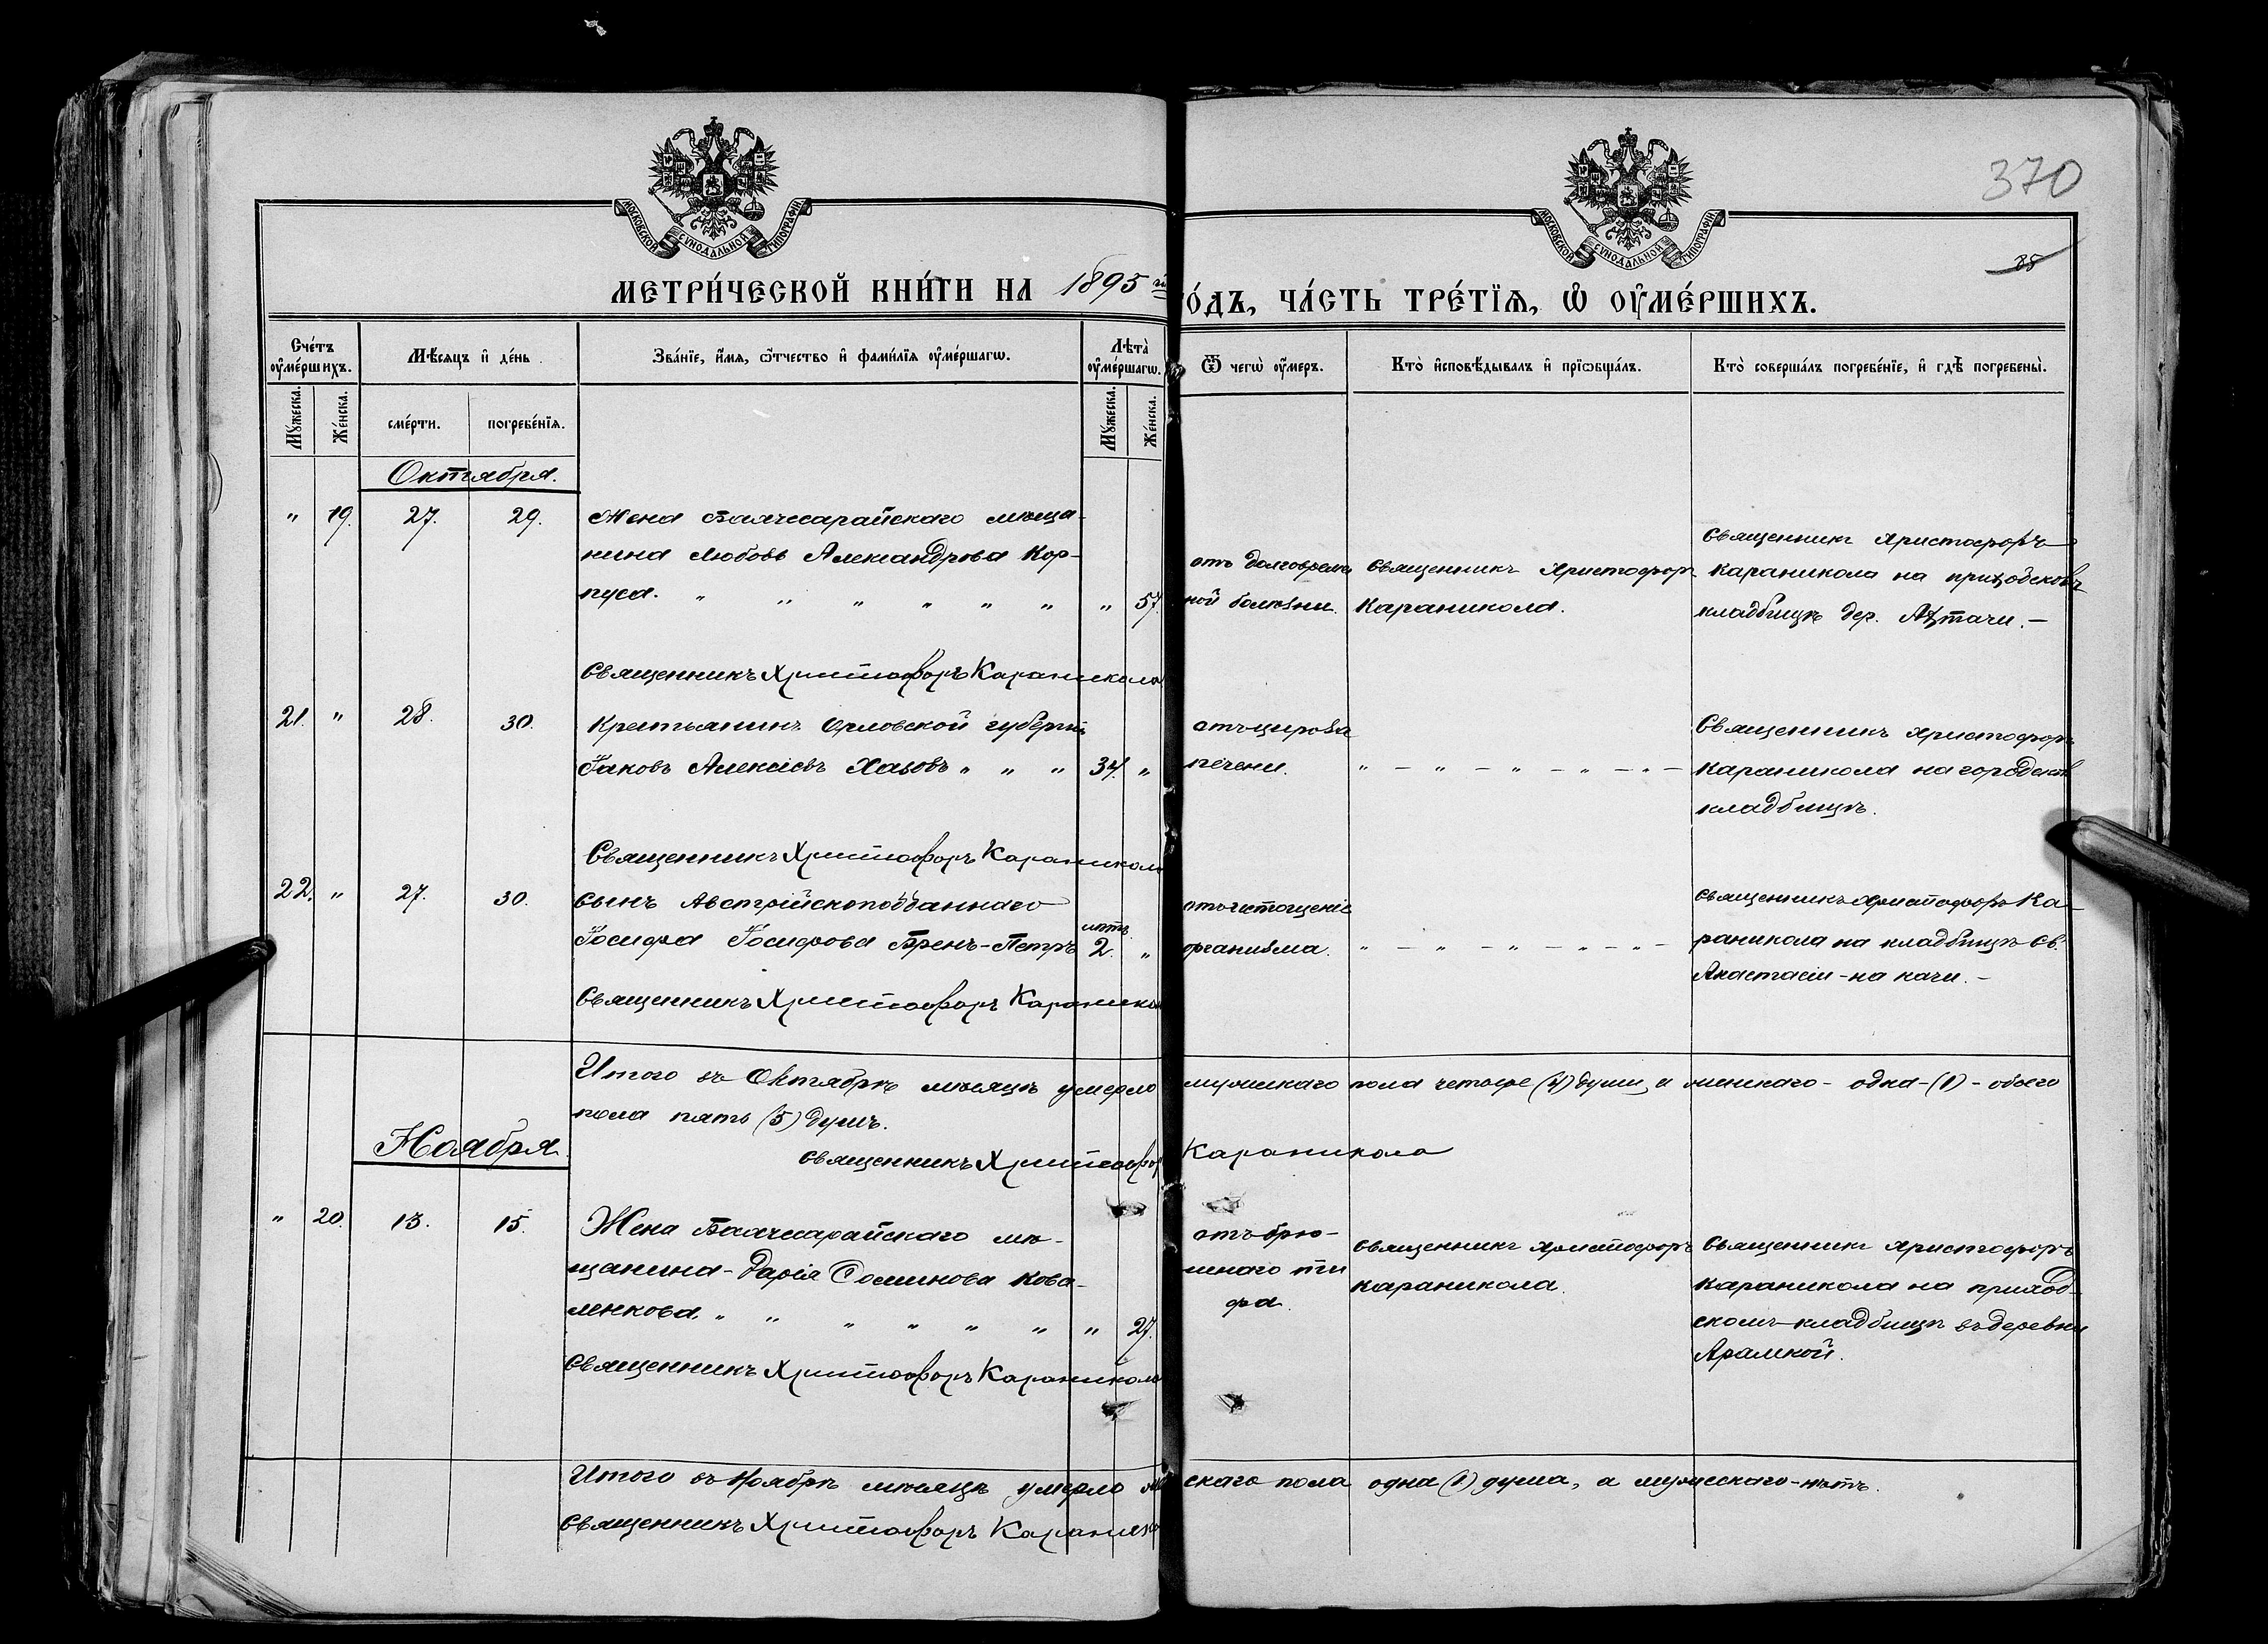 370
88
МОСКОВСКОЙ СѴНОДАЛЬНОЙ ТИПОГРАФІИ
МОСКОВСКОЙ СѴНОДАЛЬНОЙ ТИПОГРАФІИ
МЕТРИ́ЧЕСКОЙ КНИ́ГИ НА 1895 й
ГО́ДЪ, ЧА́СТЬ ТРЕ́ТЇѦ, Ѡ҆ ОУ҆МЕ́РШИХЪ.
Сче́тъ оу҆ме́ршихъ.
Мꙋ́жеска.
Же́нска.
Мѣ́сѧцъ и҆ де́нь
сме́рти.
погребе́нїѧ.
Зва́нїе, и҆́мѧ, ѻ҆́тчество и҆ фами́лїѧ оу҆ме́ршагѡ.
Лѣ́та оу҆ме́ршагѡ.
Мꙋ́жеска.
Же́нска.
Ѿ чегѡ̀ оу҆́меръ.
Кто̀ и҆сповѣ́дывалъ и҆ прїѻбща́лъ.
Кто̀ соверша́лъ погребе́нїе, и҆ гдѣ̀ погребены̀.
Октября.
" 19. 27. 29.
Жена Бахчисарайскаго мѣща-
нина Любовь Александрова Кор-
пуса. " " " " " " " 57.
отъ долговреме
ной болѣзни.
Священникъ Христофоръ
Караникола.
Священникъ Христофоръ
Караникола на приходскомъ
кладбищѣ дер. Ахтачи. –
Священникъ Христофоръ Караникола
21. " 28. 30.
Крестьянинъ Орловской губерніи
Іаковъ Алексіевъ Хазовъ " " " 34. "
отъ цироза
печени.
" – " – " – " – " –
Священникъ Христофоръ
Караникола на городскомъ
кладбищѣ.
Священникъ Христофоръ Караникола
22. " 27. 30.
Сынъ Австрійскоподданнаго
Іосифа Іосифова Бренъ-Петръ лѣтъ 2. "
отъ истощенія
организма.
" – " – " – " – " –
Священникъ Христофоръ Ка-
раникола на кладбищѣ Св.
Анастасіи – на качи. –
Священникъ Христофоръ Караникола
Итого въ Октябрѣ мѣсяцѣ умерло мужескаго пола четыре (4) души, а женскаго – одна – (1) – обоего
пола пять (5) душъ.
Священникъ Христофоръ Караникола
Ноября.
" 20. 13. 15.
Жена Бахчисарайскаго мѣ-
щанина – Дарія Фоминова Кова-
ленкова. " " " " " " " 27.
отъ брю-
шнаго ти
фа.
Священникъ Христофоръ
Караникола.
Священникъ Христофоръ
Караникола на приход-
скомъ кладбищѣ въ деревни
Аранкой.
Священникъ Христофоръ Караникола
Итого въ Ноябрѣ мѣсяцѣ умерло женскаго пола одна (1) душа, а мужескаго – нѣтъ.
Священникъ Христофоръ Караникола